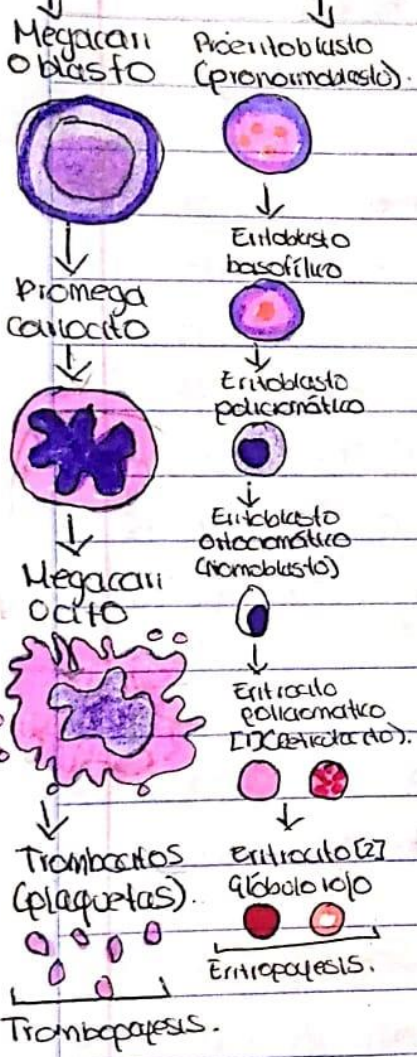 Megacari
oblasto
Promega
cariocito
Megacari
ocito
Trombocitos
(plaquetas).
Trombopoyesis.
Proeritoblasto
(pronormoblasto).
Eritoblasto
basofílico
Eritoblasto
policromático
Eritoblasto
ortocromático
(normoblasto)
Eritrocito
policromatico
[1](reticulocito).
Eritrocito [2]
glóbulo rojo
Eritropoyesis.